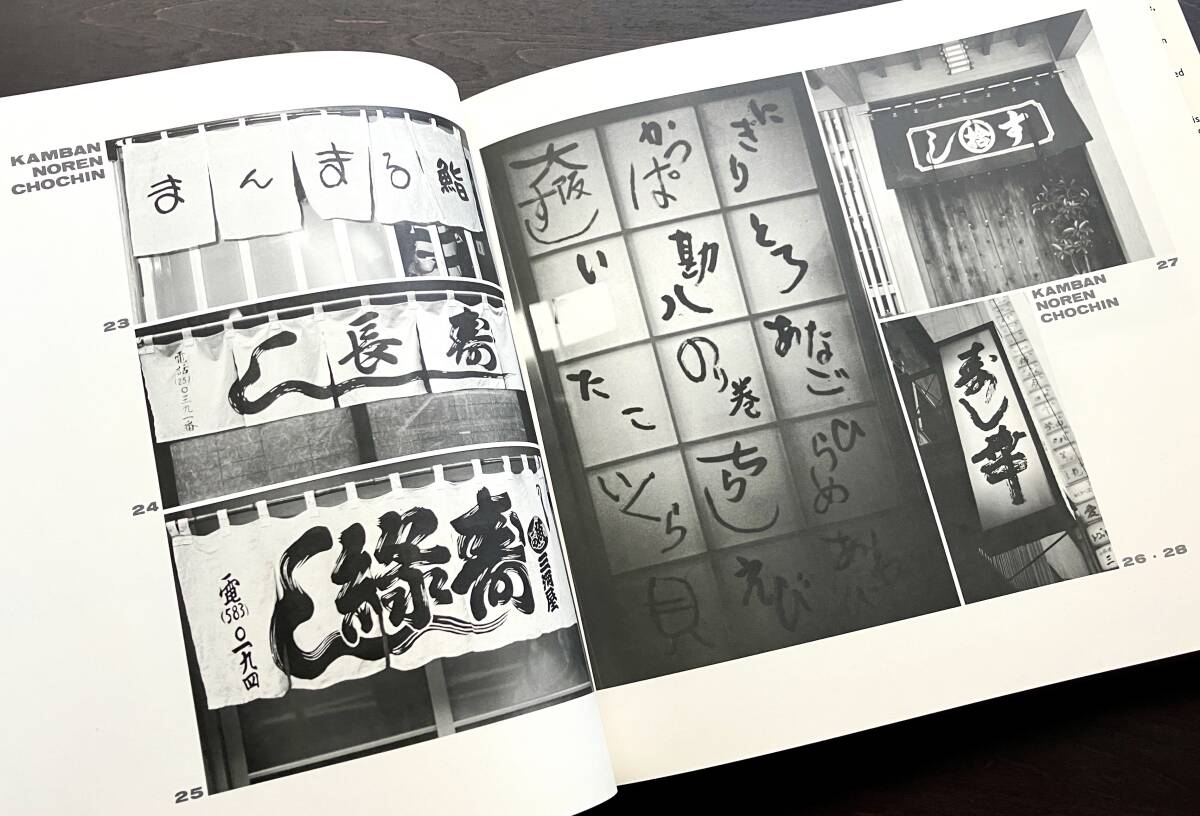 KAMBAN
NOREN
CHOCHIN
まんまる鮨
23
寿
長
し
電話(25)〇三九一番
24
三河屋
寿
緑
し
電(583)〇一九四
25
にぎり
かっぱ
大阪すし
とろ
勘八
いか
あなご
のり巻
たこ
ひらめ
ちらし
いくら
えび
貝
すし
27
KAMBAN
NOREN
CHOCHIN
寿し幸
26・28